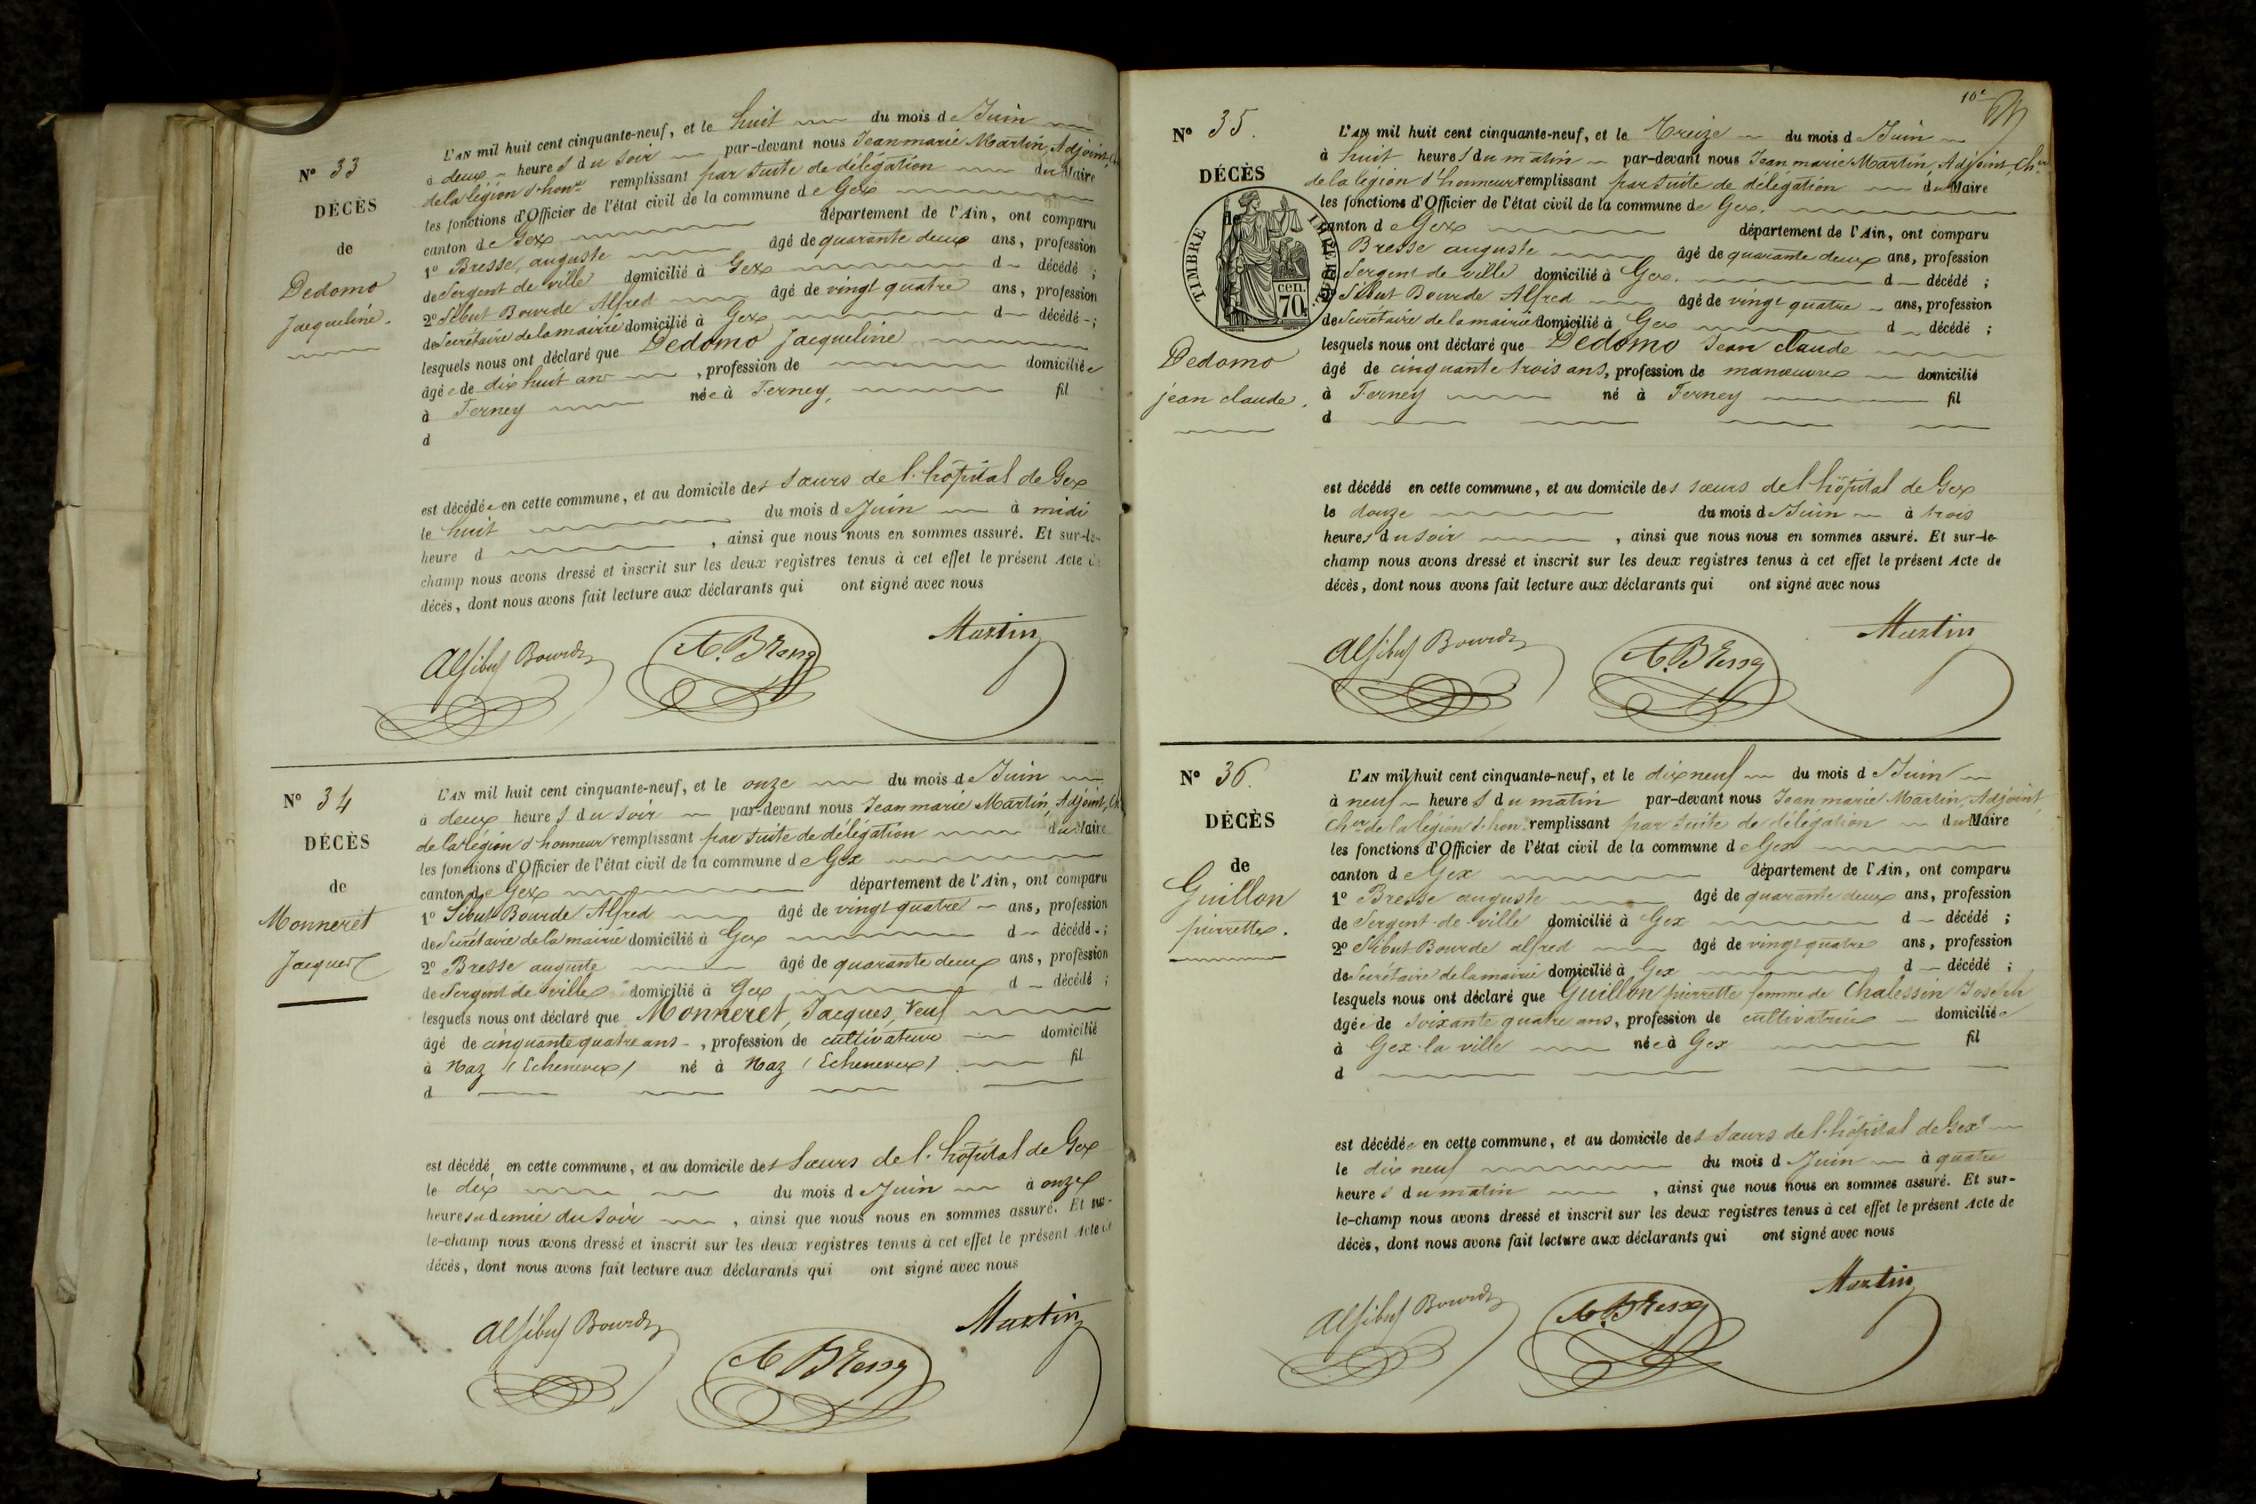 N° 33
DÉCÈS
de
Dedomo
Jacqueline.
L'AN mil huit cent cinquante-neuf, et le huit du mois de Juin
à deux heures du soir par-devant nous Jean marie Martin, Adjoint, Ch
de la légion d'honr remplissant par suite de délégation du Maire
les fonctions d'Officier de l'état civil de la commune de Gex
canton de Gex département de l'Ain, ont comparu
1° Bresse, auguste âgé de quarante deux ans, profession
de Sergent de ville domicilié à Gex d décédé ;
2° Sibut Bourde Alfred âgé de vingt quatre ans, profession
de Secrétaire de la mairie domicilié à Gex d décédé ;
lesquels nous ont déclaré que Dedomo Jacqueline
âgée de dix huit ans , profession de domiciliée
à Ferney née à Ferney, fil
d
est décédée en cette commune, et au domicile des sœurs de l'hôpital de Gex
le huit du mois de Juin à midi
heure d , ainsi que nous nous en sommes assuré. Et sur-le-
champ nous avons dressé et inscrit sur les deux registres tenus à cet effet le présent Acte de
décès, dont nous avons fait lecture aux déclarants qui ont signé avec nous
Alf Sibut Bourde A. Bresse Martin
N° 34
DÉCÈS
de
Monneret
Jacques
L'AN mil huit cent cinquante-neuf, et le onze du mois de Juin
à deux heures du soir par-devant nous Jean marie Martin, Adjoint, Ch
de la légion d'honneur remplissant par suite de délégation du Maire
les fonctions d'Officier de l'état civil de la commune de Gex
canton de Gex département de l'Ain, ont comparu
1° Sibut Bourde Alfred âgé de vingt quatre ans, profession
de Secrétaire de la mairie domicilié à Gex d décédé ;
2° Bresse auguste âgé de quarante deux ans, profession
de Sergent de ville domicilié à Gex d décédé ;
lesquels nous ont déclaré que Monneret, Jacques, Veuf
âgé de cinquante quatre ans , profession de cultivateur domicilié
à Naz (Echenevex) né à Naz (Echenevex) fil
d
est décédé en cette commune, et au domicile des sœurs de l'hôpital de Gex
le dix du mois de Juin à onze
heures et demie du soir , ainsi que nous nous en sommes assuré. Et sur-
le-champ nous avons dressé et inscrit sur les deux registres tenus à cet effet le présent Acte de
décès, dont nous avons fait lecture aux déclarants qui ont signé avec nous
Alf Sibut Bourde A Bresse Martin
10e
N° 35.
DÉCÈS
de
TIMBRE IMPÉRIAL
cen. 70
Dedomo
jean claude.
L'AN mil huit cent cinquante-neuf, et le Treize du mois de Juin
à huit heures du matin par-devant nous Jean marie Martin, Adjoint, Cher
de la légion d'honneur remplissant par suite de délégation du Maire
les fonctions d'Officier de l'état civil de la commune de Gex.
canton de Gex département de l'Ain, ont comparu
Bresse auguste âgé de quarante deux ans, profession
Sergent de ville domicilié à Gex. d décédé ;
Sibut Bourde Alfred âgé de vingt quatre ans, profession
de Secrétaire de la mairie domicilié à Gex d décédé ;
lesquels nous ont déclaré que Dedomo Jean claude
âgé de cinquante trois ans, profession de manœuvre domicilié
à Ferney né à Ferney fil
d
est décédé en cette commune, et au domicile des sœurs de l'hôpital de Gex
le douze du mois de Juin à trois
heures du soir , ainsi que nous nous en sommes assuré. Et sur-le-
champ nous avons dressé et inscrit sur les deux registres tenus à cet effet le présent Acte de
décès, dont nous avons fait lecture aux déclarants qui ont signé avec nous
Alf Sibut Bourde A. Bresse Martin
N° 36.
DÉCÈS
de
Guillon
pierrette.
L'AN mil huit cent cinquante-neuf, et le dix neuf du mois de Juin
à neuf heures du matin par-devant nous Jean marie Martin, Adjoint,
Cher de la légion d'honr remplissant par suite de délégation du Maire
les fonctions d'Officier de l'état civil de la commune de Gex
canton de Gex département de l'Ain, ont comparu
1° Bresse auguste âgé de quarante deux ans, profession
de Sergent de ville domicilié à Gex d décédé ;
2° Sibut Bourde alfred âgé de vingt quatre ans, profession
de Secrétaire de la mairie domicilié à Gex d décédé ;
lesquels nous ont déclaré que Guillon pierrette femme de Chalessin Joseph
âgée de soixante quatre ans, profession de cultivatrice domiciliée
à Gex la ville née à Gex fil
d
est décédée en cette commune, et au domicile des sœurs de l'hôpital de Gex
le dix neuf du mois de Juin à quatre
heures du matin , ainsi que nous nous en sommes assuré. Et sur-
le-champ nous avons dressé et inscrit sur les deux registres tenus à cet effet le présent Acte de
décès, dont nous avons fait lecture aux déclarants qui ont signé avec nous
Alf Sibut Bourde A. Bresse Martin